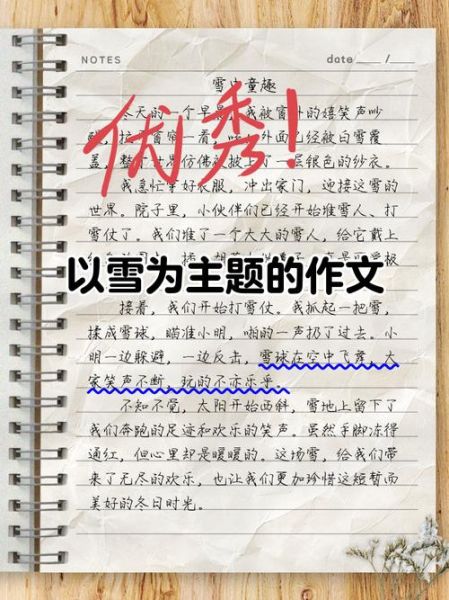 NOTES date /
雪中童趣
优秀！
冬天的一个早晨，我被窗外的嬉笑声吵
醒，拉 窗帘一看， 外面已经被白雪覆
盖，整个世界仿佛被披上了一层银色的纱衣。
我急忙穿好衣服，冲出家门，迎接这雪的
世界。院子里，小伙伴们已经开始堆雪人、打
雪仗了。我们堆了一个大大的雪人，给它戴上
极
以雪为主题的作文
接着，我们开始打雪仗。我抓起一把雪，
揉成雪球，瞄准小明，啪的一声扔了过去。小
明一边躲避，一边反击，雪球在空中飞舞，大
家笑声不断，玩的不亦乐乎。
不知不觉，太阳开始西斜，雪地上留下了
我们奔跑的足迹和欢乐的笑声。虽然手脚冻得
通红，但心里却是暖暖的。这场雪，给我们带
来了无尽的欢乐，也让我们更加珍惜这短暂而
美好的冬日时光。